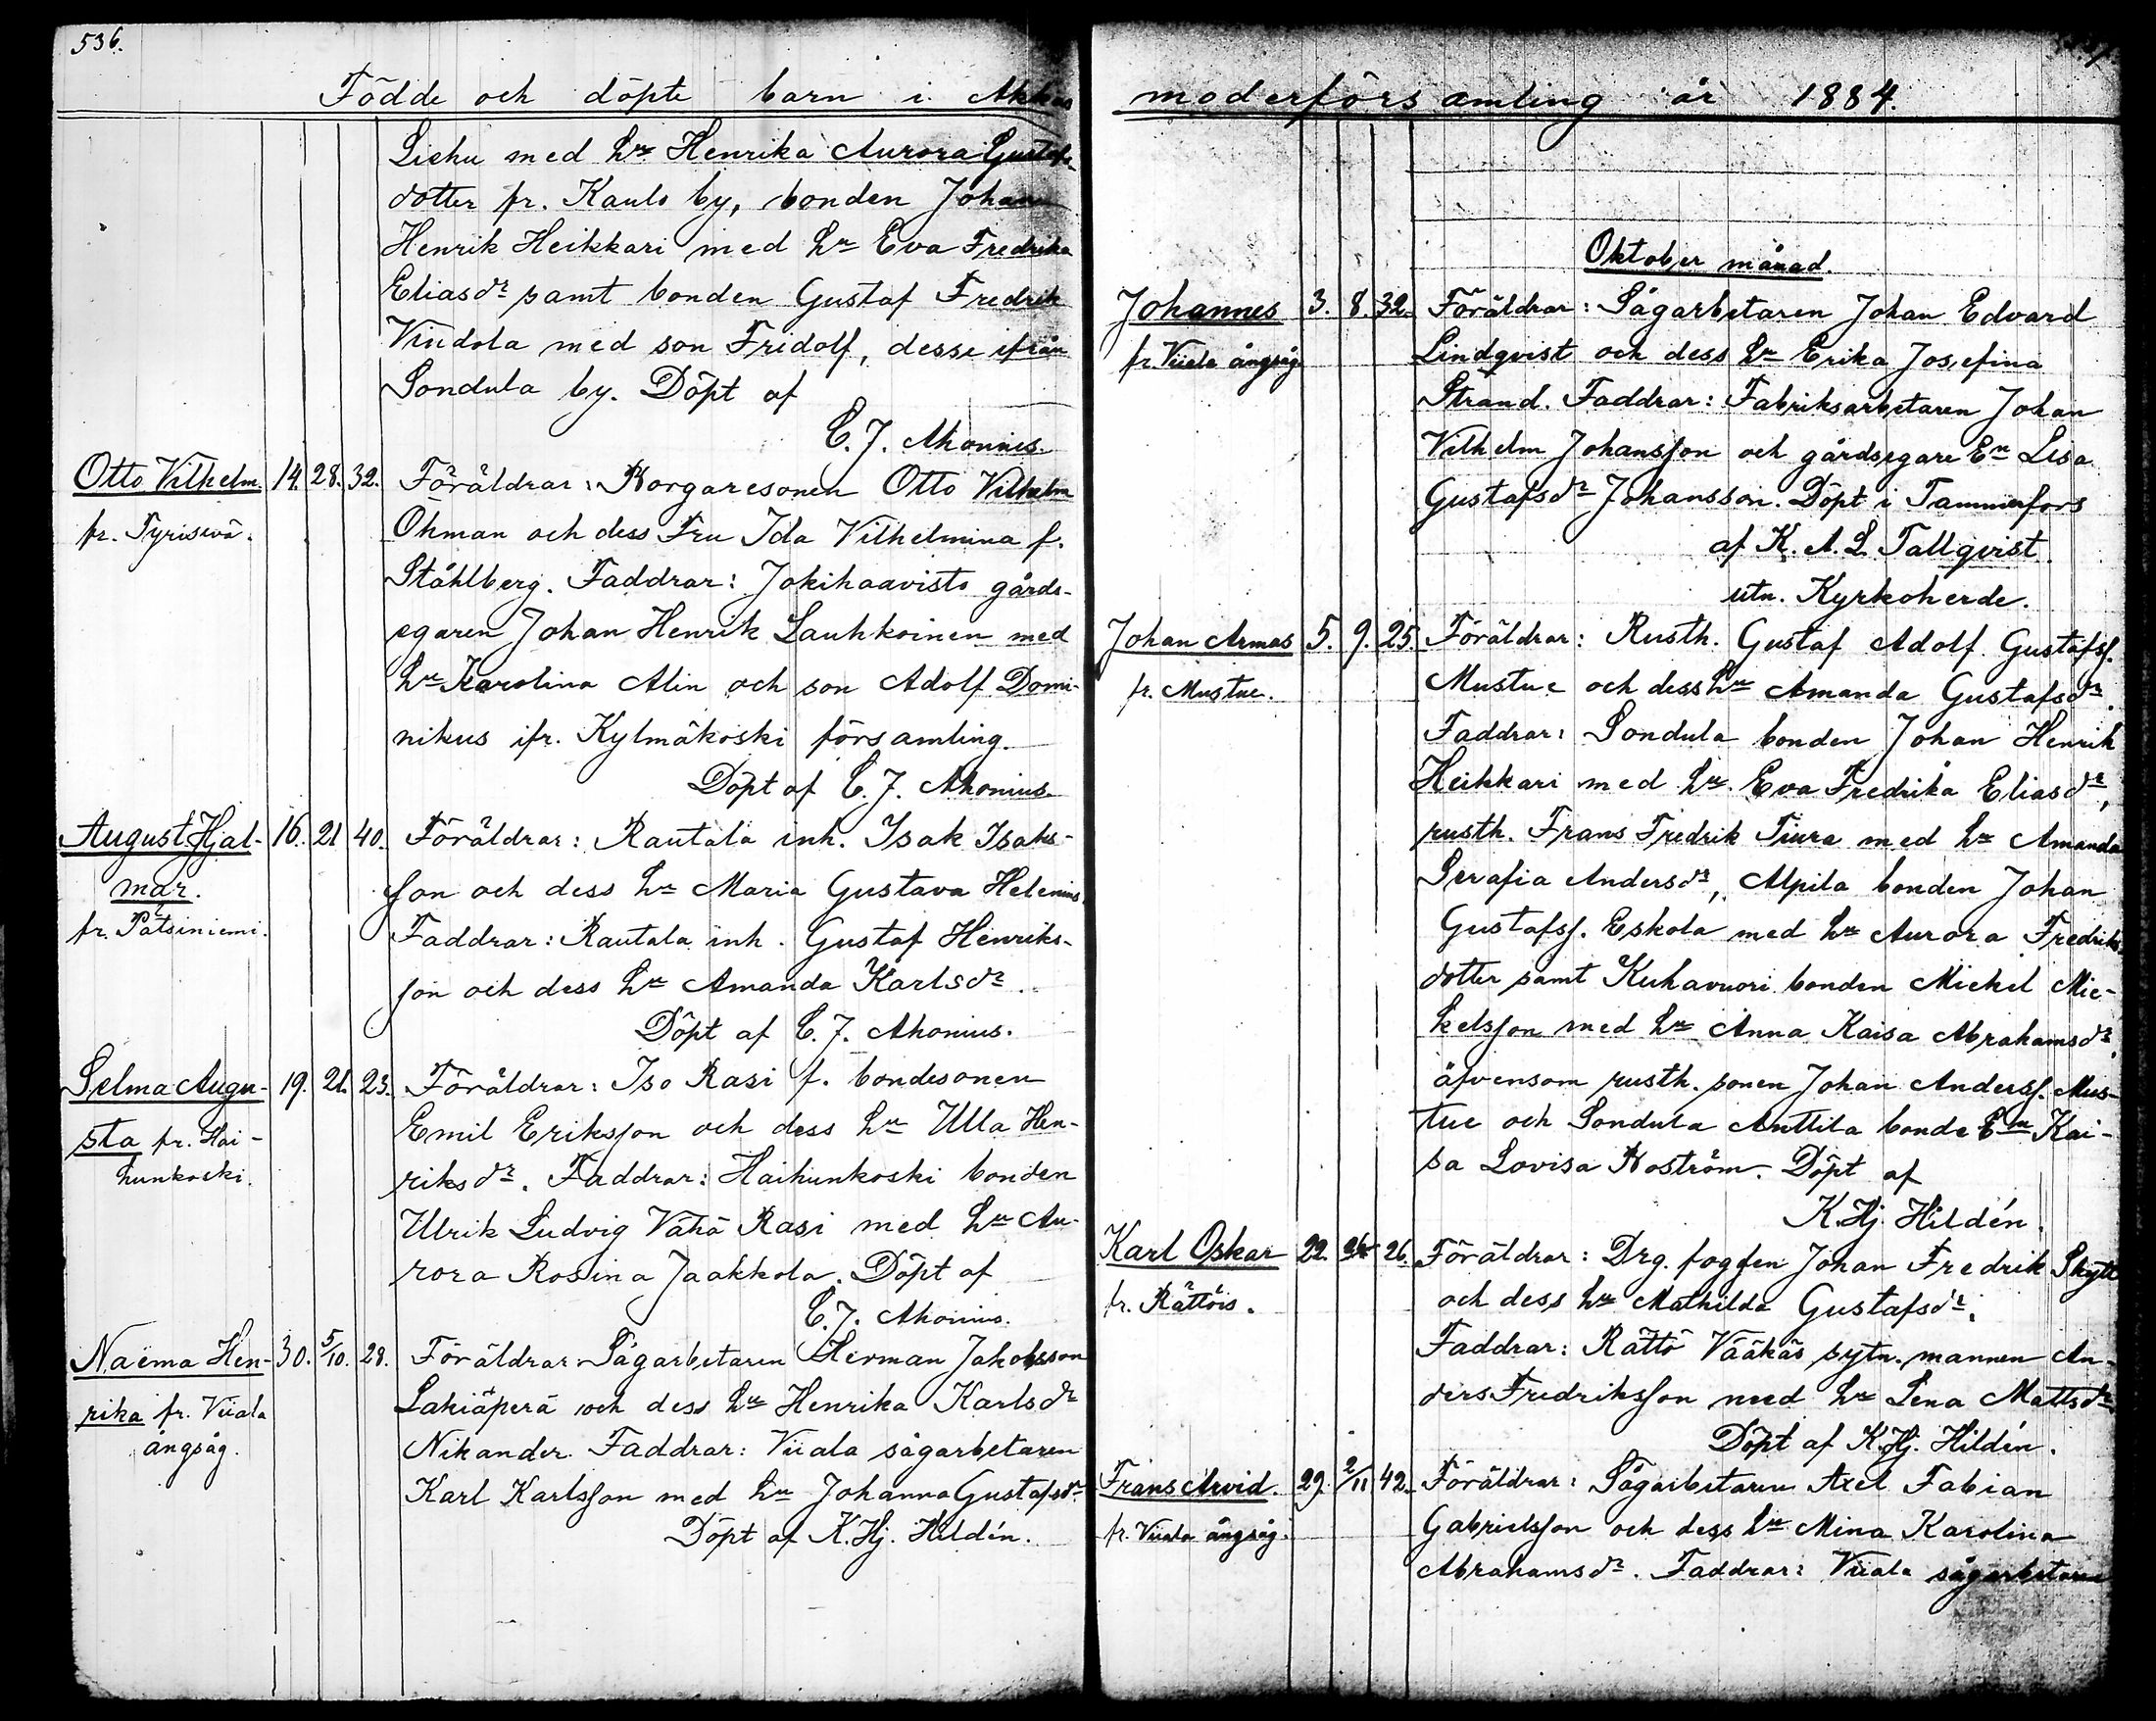 536.
Födde och döpte barn i Akkas
Liehu med hu Henrika Aurora Gustafs-
dotter fr. Kaulo by, bonden Johan
Henrik Heikkari med hu Eva Fredrika
Eliasdr samt bonden Gustaf Fredrik
Vindola med son Fridolf, dessa ifrån
Sondula by. Döpt af
C. J. Ahonius.
Otto Vilhelm. 14. 28. 32. Föräldrar: Borgaresonen Otto Vilhelm
fr. Tyriswä. Öhman och dess Fru Ida Vilhelmina f.
Ståhlberg. Faddrar: Jokihaavisto gårds-
egaren Johan Henrik Lauhkoinen med
hu Karolina Alin och son Adolf Domi-
nikus ifr. Kylmäkoski församling.
Döpt af C. J. Ahonius.
August Hjal- 16. 21 40. Föräldrar: Rautala inh. Isak Isaks-
mar. son och dess hu Maria Gustava Helenius.
fr. Pätsiniemi. Faddrar: Rautala inh. Gustaf Henriks-
son och dess hu Amanda Karlsdr.
Döpt af C. J. Ahonius.
Selma Augu- 19. 21. 23. Föräldrar: Iso Rasi f. bondesonen
sta fr. Hai- Emil Eriksson och dess hu Ulla Hen-
hunkoski. riksdr. Faddrar: Haihunkoski bonden
Ulrik Ludvig Vähä Rasi med hu Au-
rora Rosina Jaakkola. Döpt af
C. J. Ahonius.
Naëma Hen- 30. 5/10. 28. Föräldrar: Sågarbetaren Herman Jakobsson
rika fr. Viiala Lakiäperä och dess hu Henrika Karlsdr
ångsåg. Nikander. Faddrar: Viiala sågarbetaren
Karl Karlsson med hu Johanna Gustafsdr.
Döpt af K. Hj. Hildén.
moderförsamling år 1884.
Oktober månad.
Johannes 3. 8. 32. Föräldrar: Sågarbetaren Johan Edvard
fr. Viiala ångsåg Lindqvist och dess hu Erika Josefina
Strand. Faddrar: Fabriksarbetaren Johan
Vilhelm Johansson och gårdsegare En Lisa
Gustafsdr Johansson. Döpt i Tammerfors
af K. A. L. Tallqvist.
utn. Kyrkoherde.
Johan Armas 5. 9. 25. Föräldrar: Rusth. Gustaf Adolf Gustafss.
fr. Mustue. Mustue och dess hu Amanda Gustafsdr.
Faddrar: Sondula bonden Johan Henrik
Heikkari med hu Eva Fredrika Eliasdr,
rusth. Frans Fredrik Tiura med hu Amanda
Serafia Andersdr, Alpila bonden Johan
Gustafss. Eskola med hu Aurora Fredriks
dotter samt Kuhavuori bonden Mickel Mic-
kelsson med hu Anna Kaisa Abrahamsdr,
äfvensom rusth. sonen Johan Anderss. Mus-
tue och Sondula Anttila bonde En Kai-
sa Lovisa Roström. Döpt af
K. Hj. Hildén.
Karl Oskar 22. 26. Föräldrar: Drg. fogden Johan Fredrik Skytt
fr. Rättöis. och dess hu Mathilda Gustafsdr.
Faddrar: Rättö Vääkäs sytn. mannen An-
ders Fredriksson med hu Lena Mattsdr
Döpt af K. Hj. Hildén.
Frans Arvid. 29. 2/11 42. Föräldrar: Sågarbetaren Axel Fabian
fr. Viiala ångsåg. Gabrielsson och dess hu Mina Karolina
Abrahamsdr. Faddrar: Viiala sågarbetaren